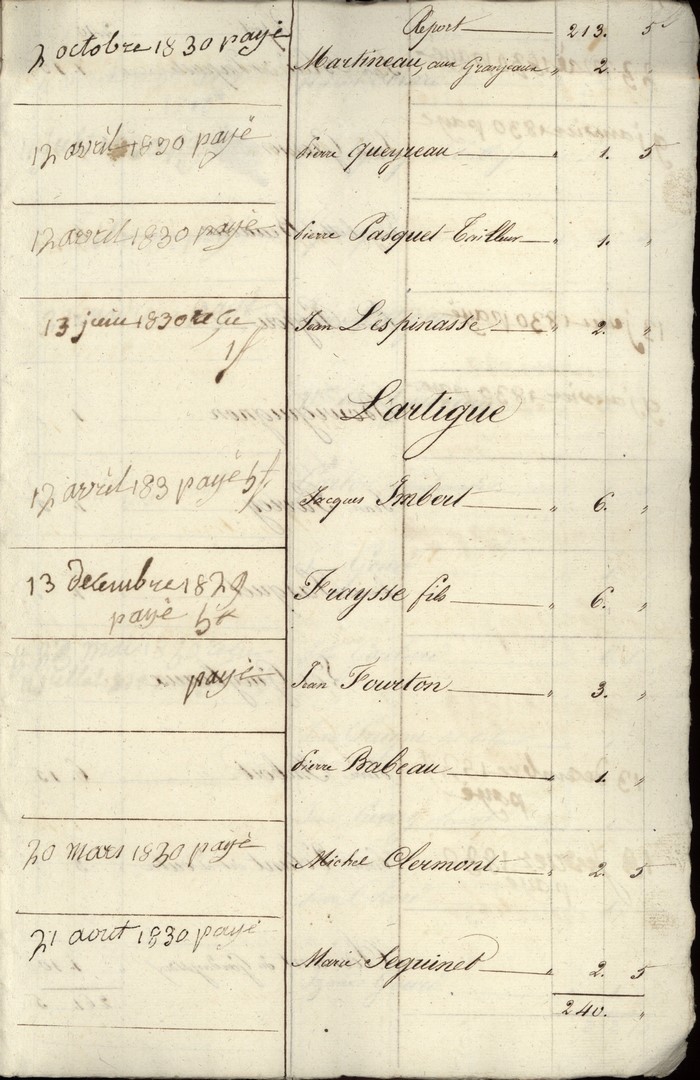 Report 213. 5
2 octobre 1830 payé Martineau, aux Granjeaux „ 2. „
12 avril 1830 payé pierre queyreau „ 1. 5
12 avril 1830 payé pierre Pasquet Tailleur „ 1. „
13 juin 1830 reçu Jean L'éspinasse „ 2. „
1f
L'artigue
12 avril 183 payé 5f Jacques Imbert „ 6. „
13 decembre 1829 Fraysse fils „ 6. „
payé 5f
payé Jean Fourton „ 3. „
pierre Babeau „ 1. „
20 mars 1830 payé Michel Clermont „ 2. 5
21 aout 1830 payé Marie Seguinet „ 2. 5
240. „